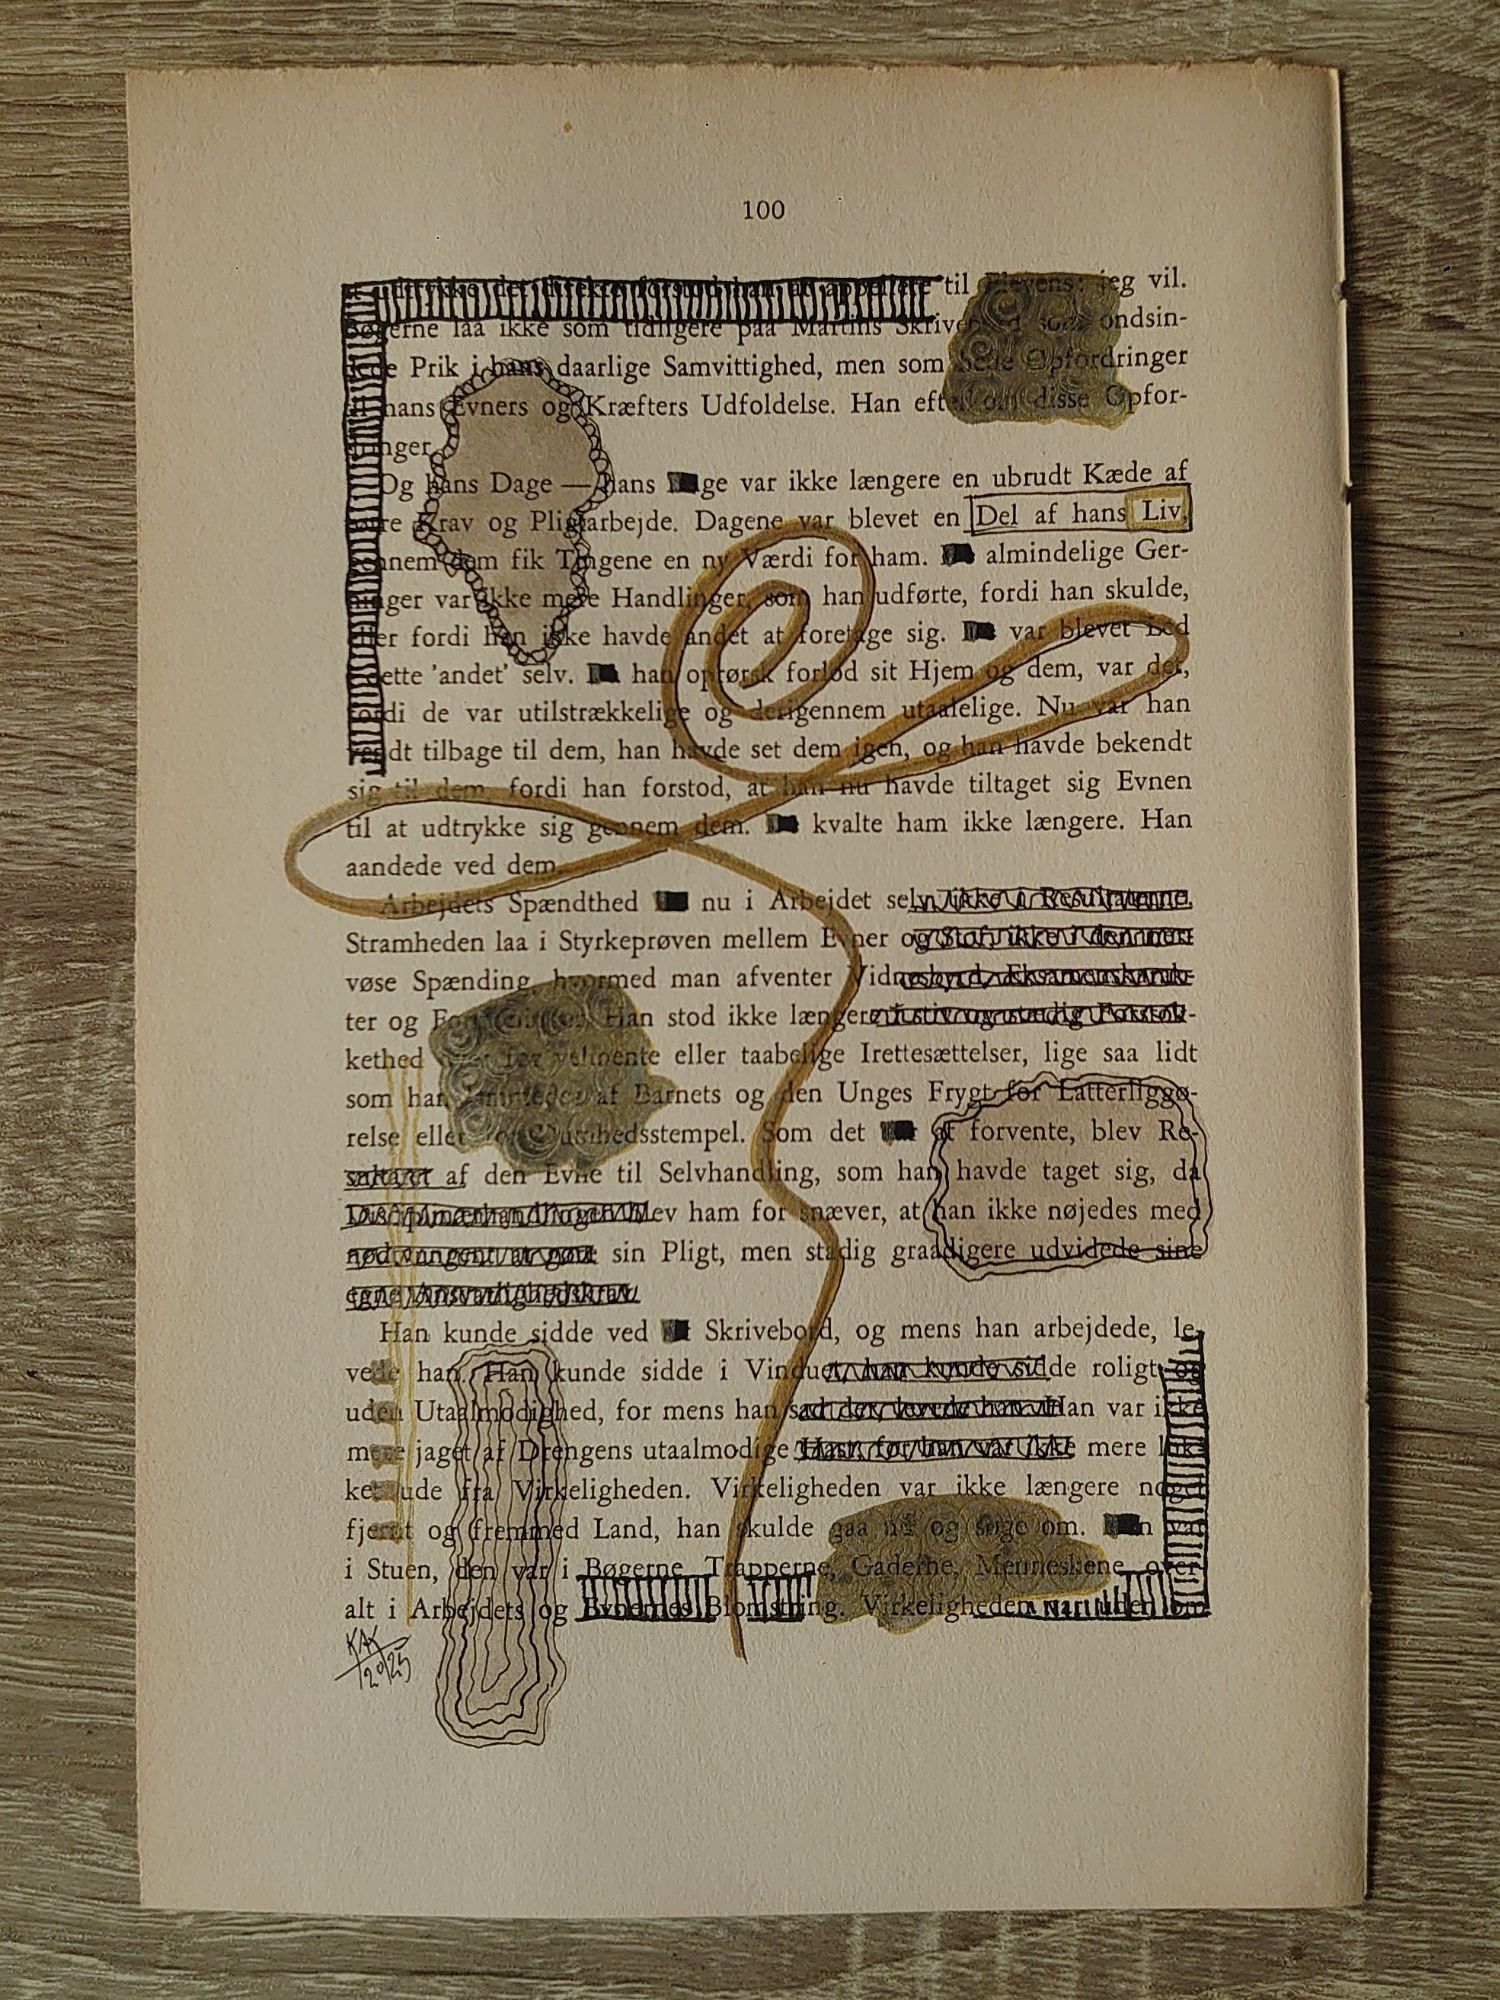 100
til jeg vil.
laa ikke som tidligere paa Martins ondsin-
Prik i hans daarlige Samvittighed, men som Opfordringer
hans Evners og Kræfters Udfoldelse. Han disse Opfor-
Og hans Dage — hans var ikke længere en ubrudt Kæde af
Krav og Pligtarbejde. Dagene var blevet en Del af hans Liv,
dem fik Tingene en ny Værdi for ham. almindelige Ger-
ninger var ikke mere Handlinger, som han udførte, fordi han skulde,
eller fordi han ikke havde andet at foretage sig. var blevet Led
dette 'andet' selv. han oprørsk forlod sit Hjem og dem, var det,
fordi de var utilstrækkelige og derigennem utaalelige. Nu var han
vendt tilbage til dem, han havde set dem igen, og han havde bekendt
sig til dem, fordi han forstod, at han nu havde tiltaget sig Evnen
til at udtrykke sig gennem dem. kvalte ham ikke længere. Han
aandede ved dem.
Arbejdets Spændthed nu i Arbejdet selv, ikke i Resultaterne.
Stramheden laa i Styrkeprøven mellem Evner og Stof, ikke i den ner-
vøse Spænding, hvormed man afventer
ter og Han stod ikke længere
kethed velmente eller taabelige Irettesættelser, lige saa lidt
som han af Barnets og den Unges Frygt for Latterliggø-
relse eller Som det at forvente, blev Re-
af den Evne til Selvhandling, som han havde taget sig, da
blev ham for snæver, at han ikke nøjedes med
sin Pligt, men stadig graadigere udvidede sine
egne Ansvarlighedskrav.
Han kunde sidde ved Skrivebord, og mens han arbejdede, le-
vede han. Han kunde sidde i Vinduet, han kunde sidde roligt og
uden Utaalmodighed, for mens han sad der, levede han. Han var ikke
mere jaget af Drengens utaalmodige Hast, for han var ikke mere luk-
ket ude fra Virkeligheden. Virkeligheden var ikke længere noget
fjernt og fremmed Land, han skulde gaa ud og søge om. var
i Stuen, den var i Bøgerne, Trapperne, Gaderne, Menneskene, over-
alt i Arbejdets og Evnernes Blomstring. Virkeligheden var uden om
KAK
2025